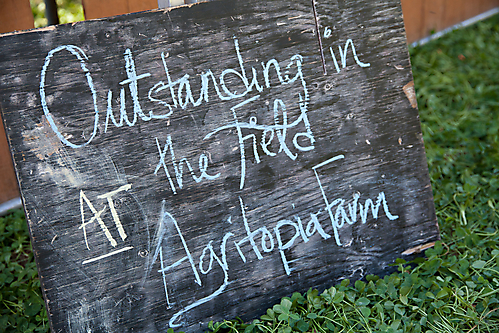 Outstanding in
the Field
AT
Agritopia Farm